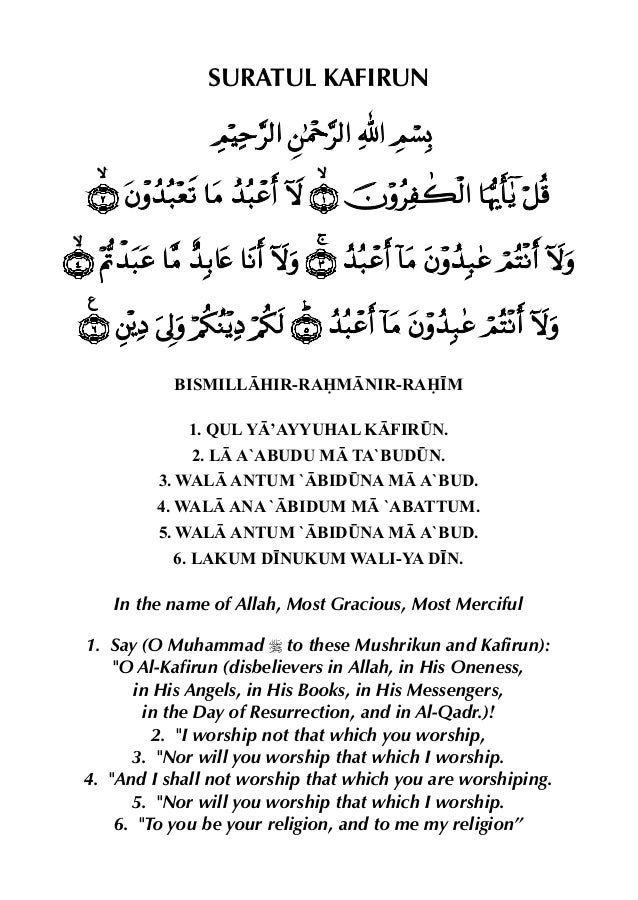 SURATUL KAFIRUN
بِسْمِ اللّٰهِ الرَّحْمٰنِ الرَّحِيْمِ
قُلْ يٰٓاَيُّهَا الْكٰفِرُوْنَ ۙ﴿١﴾ لَآ اَعْبُدُ مَا تَعْبُدُوْنَ ۙ﴿٢﴾
وَلَآ اَنْتُمْ عٰبِدُوْنَ مَآ اَعْبُدُ ۚ﴿٣﴾ وَلَآ اَنَا عَابِدٌ مَّا عَبَدْتُّمْ ۙ﴿٤﴾
وَلَآ اَنْتُمْ عٰبِدُوْنَ مَآ اَعْبُدُ ؕ﴿٥﴾ لَكُمْ دِيْنُكُمْ وَلِيَ دِيْنِ ﴿٦﴾ ع
BISMILLĀHIR-RAḤMĀNIR-RAḤĪM
1. QUL YĀ’AYYUHAL KĀFIRŪN.
2. LĀ A`ABUDU MĀ TA`BUDŪN.
3. WALĀ ANTUM `ĀBIDŪNA MĀ A`BUD.
4. WALĀ ANA `ĀBIDUM MĀ `ABATTUM.
5. WALĀ ANTUM `ĀBIDŪNA MĀ A`BUD.
6. LAKUM DĪNUKUM WALI-YA DĪN.
In the name of Allah, Most Gracious, Most Merciful
1. Say (O Muhammad ﷺ to these Mushrikun and Kafirun):
"O Al-Kafirun (disbelievers in Allah, in His Oneness,
in His Angels, in His Books, in His Messengers,
in the Day of Resurrection, and in Al-Qadr.)!
2. "I worship not that which you worship,
3. "Nor will you worship that which I worship.
4. "And I shall not worship that which you are worshiping.
5. "Nor will you worship that which I worship.
6. "To you be your religion, and to me my religion”